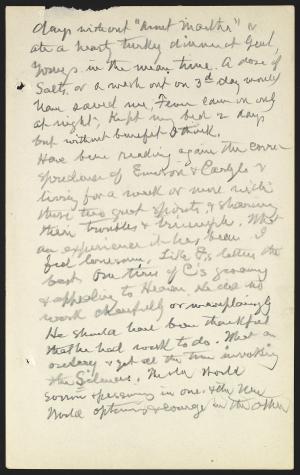 days without "Aunt Martha" &
ate a hearty turkey dinner at Geol.
Youngs in the mean time. A dose of
Salts, or a wash out on 3d day would
have saved me. Fever came on only
at night. Kept my bed 2 days
but without benefit I think.
Have been reading again the corres-
pondence of Emerson & Carlyle &
living for a week or more with
these two great spirits, & sharing
their troubles & triumphs. What
an experience it has been. I
feel lonesome. Like E's letters the
best. One tires of C's groaning
& appealing to Heaven. He did no
work cheerfully or uncomplainingly
He should have been thankful
that he had work to do. What an
and yet all the time invoking
the Silences. The Old World
sorrow & pessimism in one, & the New
World optimism & courage in the other